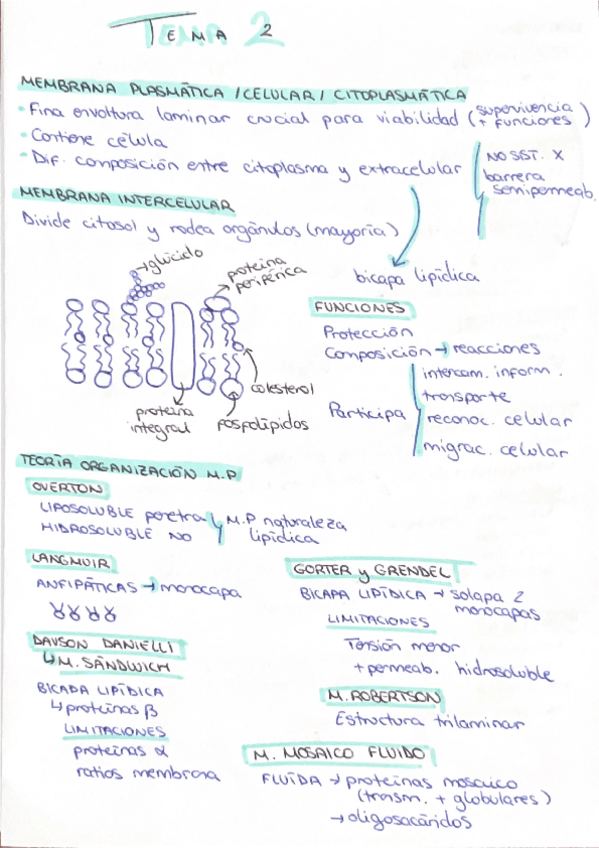 TEMA 2
MEMBRANA PLASMÁTICA / CELULAR / CITOPLASMÁTICA
· Fina envoltura laminar crucial para viabilidad (supervivencia + funciones)
· Contiene célula
· Dif. composición entre citoplasma y extracelular
NO SST. X
barrera
semipermeab.
MEMBRANA INTERCELULAR
Divide citosol y rodea orgánulos (mayoría)
bicapa lipídica
glúcido
proteína
periférica
colesterol
proteína
integral
fosfolípidos
FUNCIONES
Protección
Composición → reacciones
Participa
intercam. inform.
transporte
reconoc. celular
migrac. celular
TEORÍA ORGANIZACIÓN M.P
OVERTON
LIPOSOLUBLE penetra
HIDROSOLUBLE NO
M.P naturaleza
lipídica
LANGMUIR
ANFIPÁTICAS → monocapa
GORTER y GRENDEL
BICAPA LIPÍDICA → solapa 2
monocapas
LIMITACIONES
Tensión menor
+ permeab. hidrosoluble
DAVSON DANIELLI
↳ M. SÁNDWICH
BICAPA LIPÍDICA
↳ proteínas β
LIMITACIONES
proteínas α
ratios membrana
M. ROBERTSON
Estructura trilaminar
M. MOSAICO FLUIDO
FLUÍDA → proteínas mosaico
(transm. + globulares)
→ oligosacáridos